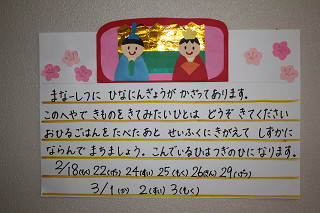 まなーしつに ひなにんぎょうが かざってあります。
このへやで きものをきてみたいひとは どうぞ きてください
おひるごはんを たべたあと せいふくに きがえて しずかに
ならんで まちましょう。こんでいるひはつぎのひになります。
2/18(もく) 22(げつ) 24(すい) 25(もく) 26(きん) 29(げつ)
3/1(か) 2(すい) 3(もく)